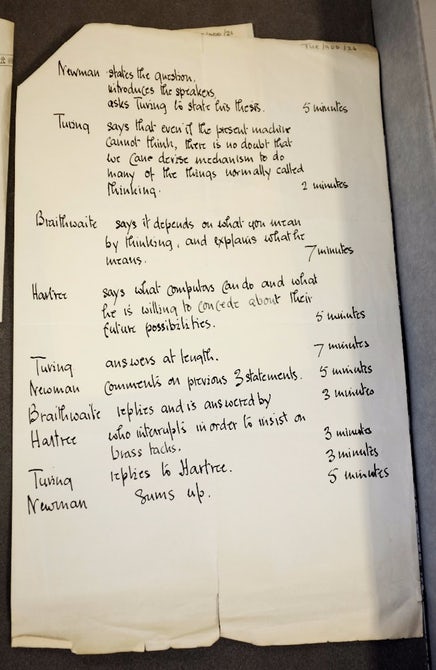 TUR/1400/26
Newman states the question,
introduces the speakers,
asks Turing to state his thesis. 5 minutes
Turing says that even if the present machine
cannot think, there is no doubt that
we can devise mechanism to do
many of the things normally called
thinking. 2 minutes
Braithwaite says it depends on what you mean
by thinking, and explains what he
means. 7 minutes
Hartree says what computers can do and what
he is willing to concede about their
future possibilities. 5 minutes
Turing answers at length. 7 minutes
Newman comments on previous 3 statements. 5 minutes
Braithwaite replies and is answered by 3 minutes
Hartree who interrupts in order to insist on
brass tacks. 3 minutes
Turing replies to Hartree. 3 minutes
Newman sums up. 5 minutes